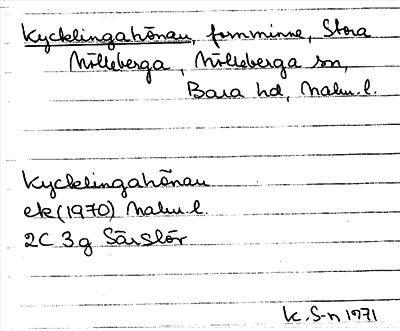 Kycklingahönan, fornminne, Stora
Mölleberga, Mölleberga sn,
Bara hd, Malm.l.
Kycklingahönan
ek (1970) Malm.l.
2C 3g Särslöv
K. S-n 1971